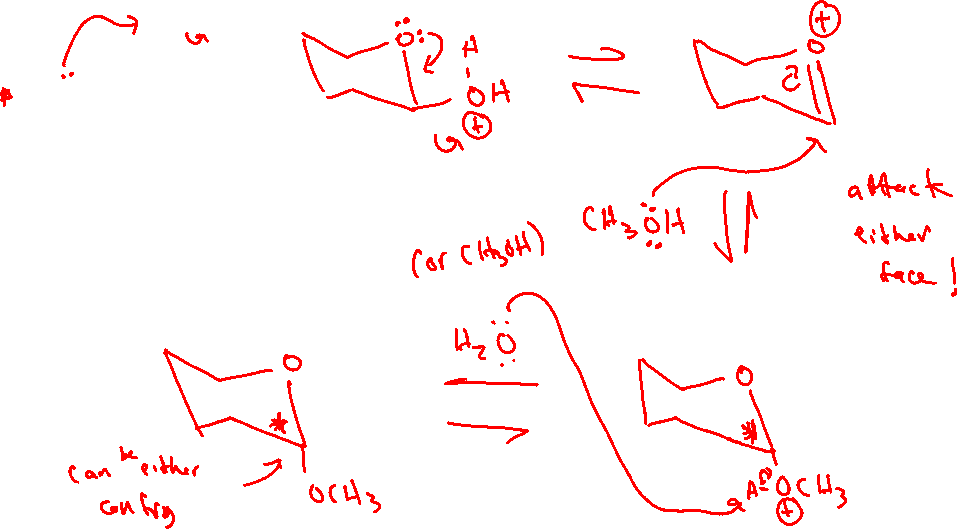 O: H
OH
+
+
O
CH3OH
attack
either
face!
(or CH3OH)
H2O
O
O
can be either
config
OCH3
H OCH3
+